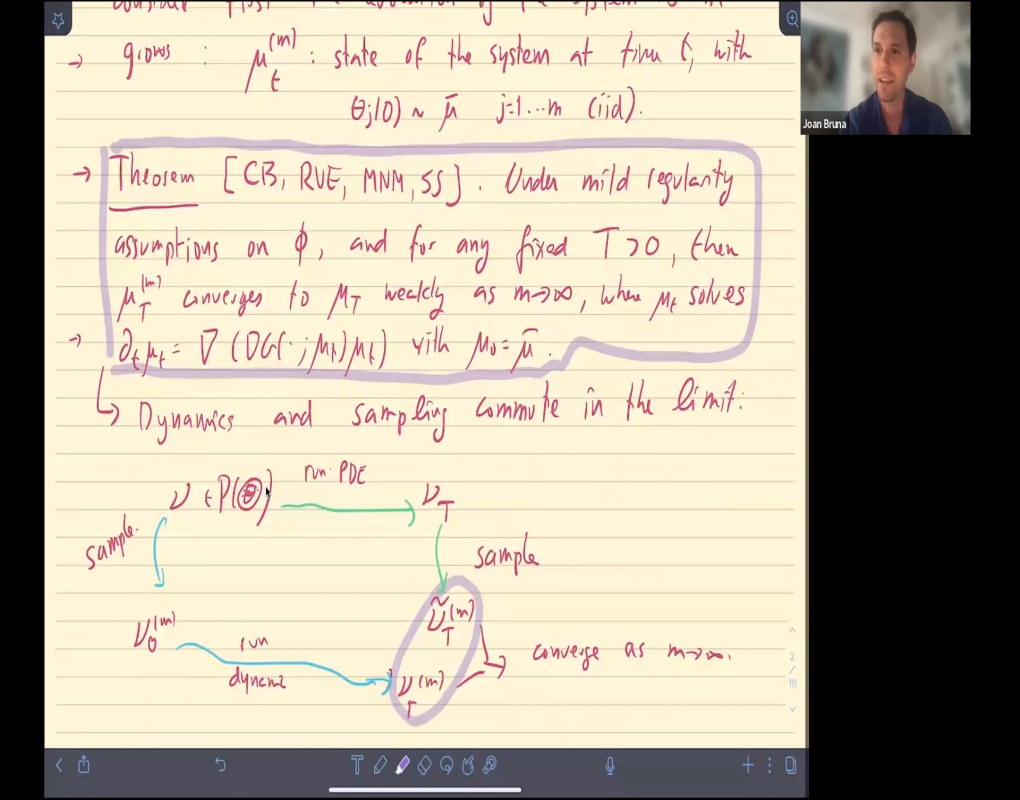 consider first the evolution of the system as m
→ grows : μ_t^(m) : state of the system at time t, with
θj(0) ~ μ̄ j=1...m (iid).
→ Theorem [CB, RVE, MNM, SS]. Under mild regularity
assumptions on ϕ, and for any fixed T>0, then
μ_T^(m) converges to μ_T weakly as m→∞, where μ_t solves
→ ∂_t μ_t = ∇(DG(·; μ_t) μ_t) with μ_0 = μ̄.
↳ Dynamics and sampling commute in the limit:
ν ∈ P(Θ) run PDE ν_T
sample. sample
ν_0^(m) run dynamic ν̃_T^(m)
ν_T^(m) converge as m→∞.
Joan Bruna
2
/
10